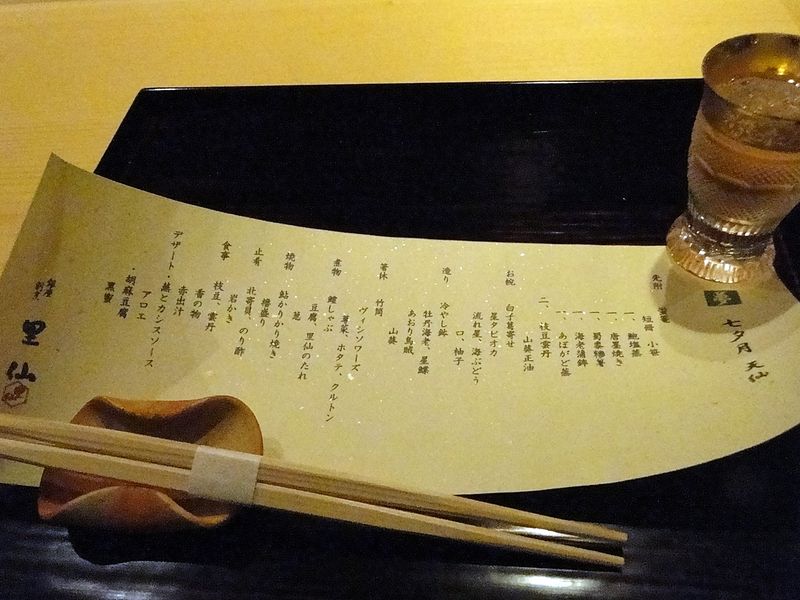 七夕月 天仙
先附
短冊 小笹
一、鮑塩蒸
一、唐墨焼き
一、蜀黍
一、海老蒲鉾
一、あぼがど蒸
二、枝豆雲丹
山葵正油
お椀
白子葛寄せ
星タピオカ
流れ星、海ぶどう
口、柚子
造り
冷やし鉢
牡丹海老、星鰈
あおり烏賊
山葵
箸休
竹筒
ヴィシソワーズ
蓴菜、ホタテ、クルトン
煮物
鱧しゃぶ
豆腐、里仙のたれ
葱
焼物
鮎かりかり焼き
止肴
檜盛り
北寄貝、のり酢
岩かき
食事
枝豆、雲丹
香の物
赤出汁
デザート・蒸とカシスソース
アロエ
・胡麻豆腐
黒蜜
銀座
割烹
里仙